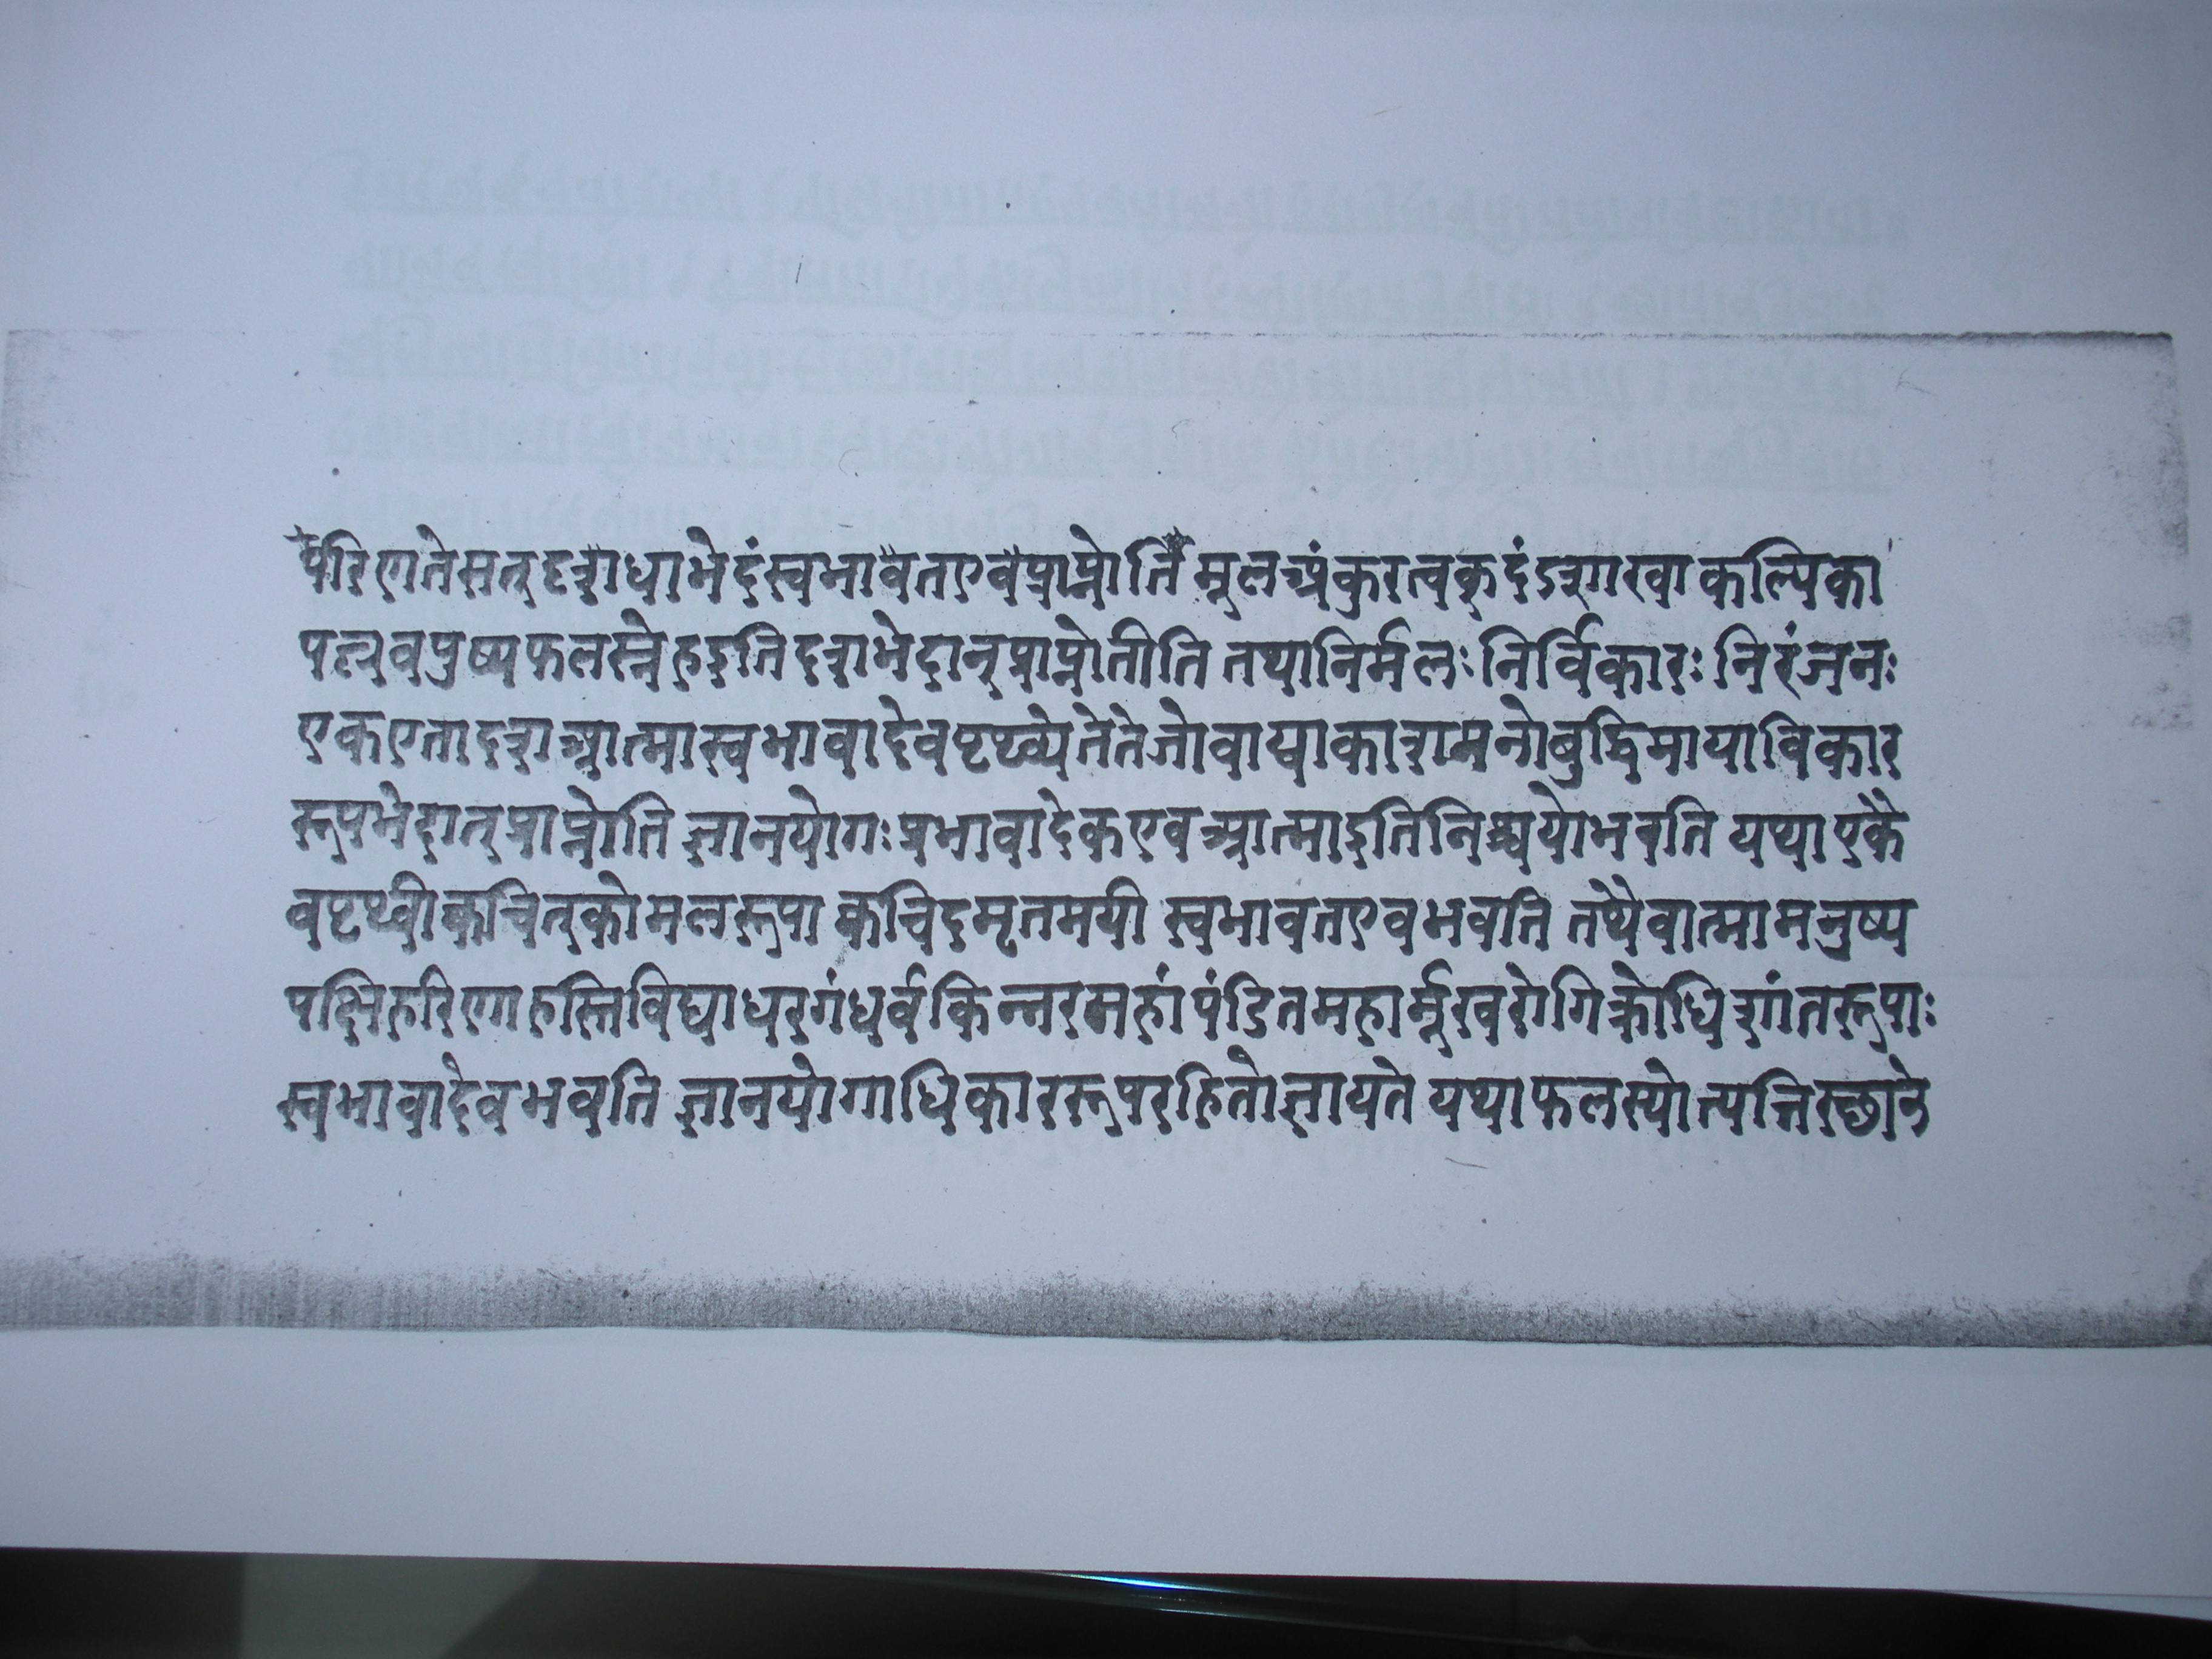 परिणतेसत्दृशधाभेदंस्वभावतएवप्राप्नोति मूलअंकुरत्वक्दंडशाखाकल्पिका
पल्लवपुष्पफलस्नेहइतिदशभेदान्प्राप्नोतीति तथानिर्मलः निर्विकारः निरंजनः
एकएतादृशआत्मास्वभावादेवपृथ्व्येतेतेजोवाय्वाकाशमनोबुद्धिमायाविकार
रूपभेदात्प्राप्नोति ज्ञानयोगःप्रभावादेकएवआत्माइतिनिश्चयोभवति यथाएकै
वपृथ्वीक्वचित्कोमलरूपा क्वचिदमृतमयी स्वभावतएवभवति तथैवात्मामनुष्य
पक्षिहरिणहस्तिविद्याधरगंधर्वकिन्नरमहांपंडितमहामूर्खरोगिक्रोधिशांतरूपाः
स्वभावादेवभवति ज्ञानयोगाधिकाररूपरहितोज्ञायते यथाफलस्योत्पत्तिस्छाने